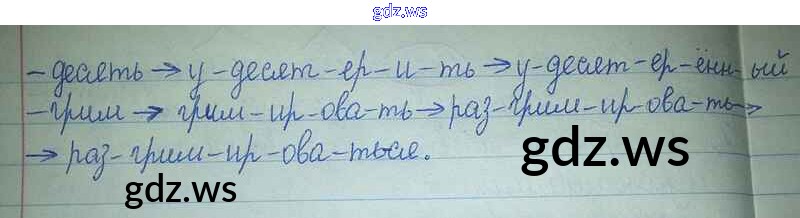 gdz.ws
-десять → у-десят-ер-и-ть → у-десят-ер-ённ-ый
-грим → грим-ир-ова-ть → раз-грим-ир-ова-ть →
→ раз-грим-ир-ова-ться.
gdz.ws
gdz.ws